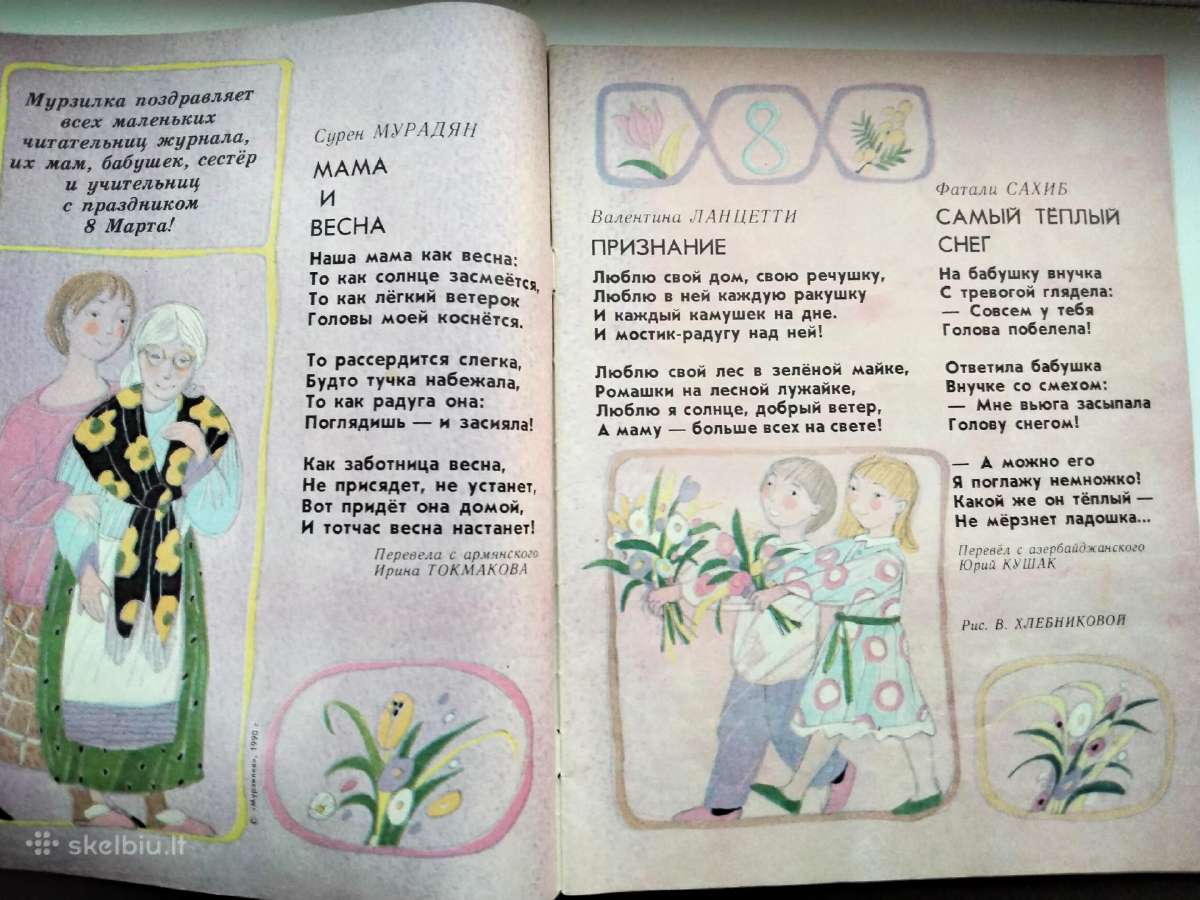 Мурзилка поздравляет
всех маленьких
читательниц журнала,
их мам, бабушек, сестёр
и учительниц
с праздником
8 Марта!
Сурен МУРАДЯН
МАМА
И
ВЕСНА
Наша мама как весна:
То как солнце засмеётся,
То как лёгкий ветерок
Головы моей коснётся.
То рассердится слегка,
Будто тучка набежала,
То как радуга она:
Поглядишь — и засияла!
Как заботница весна,
Не присядет, не устанет,
Вот придёт она домой,
И тотчас весна настанет!
Перевела с армянского
Ирина ТОКМАКОВА
© «Мурзилка», 1990 г.
8
Валентина ЛАНЦЕТТИ
ПРИЗНАНИЕ
Люблю свой дом, свою речушку,
Люблю в ней каждую ракушку
И каждый камушек на дне.
И мостик-радугу над ней!
Люблю свой лес в зелёной майке,
Ромашки на лесной лужайке,
Люблю я солнце, добрый ветер,
А маму — больше всех на свете!
Фатали САХИБ
САМЫЙ ТЁПЛЫЙ
СНЕГ
На бабушку внучка
С тревогой глядела:
— Совсем у тебя
Голова побелела!
Ответила бабушка
Внучке со смехом:
— Мне вьюга засыпала
Голову снегом!
— А можно его
Я поглажу немножко!
Какой же он тёплый —
Не мёрзнет ладошка...
Перевёл с азербайджанского
Юрий КУШАК
Рис. В. ХЛЕБНИКОВОЙ
skelbiu.lt